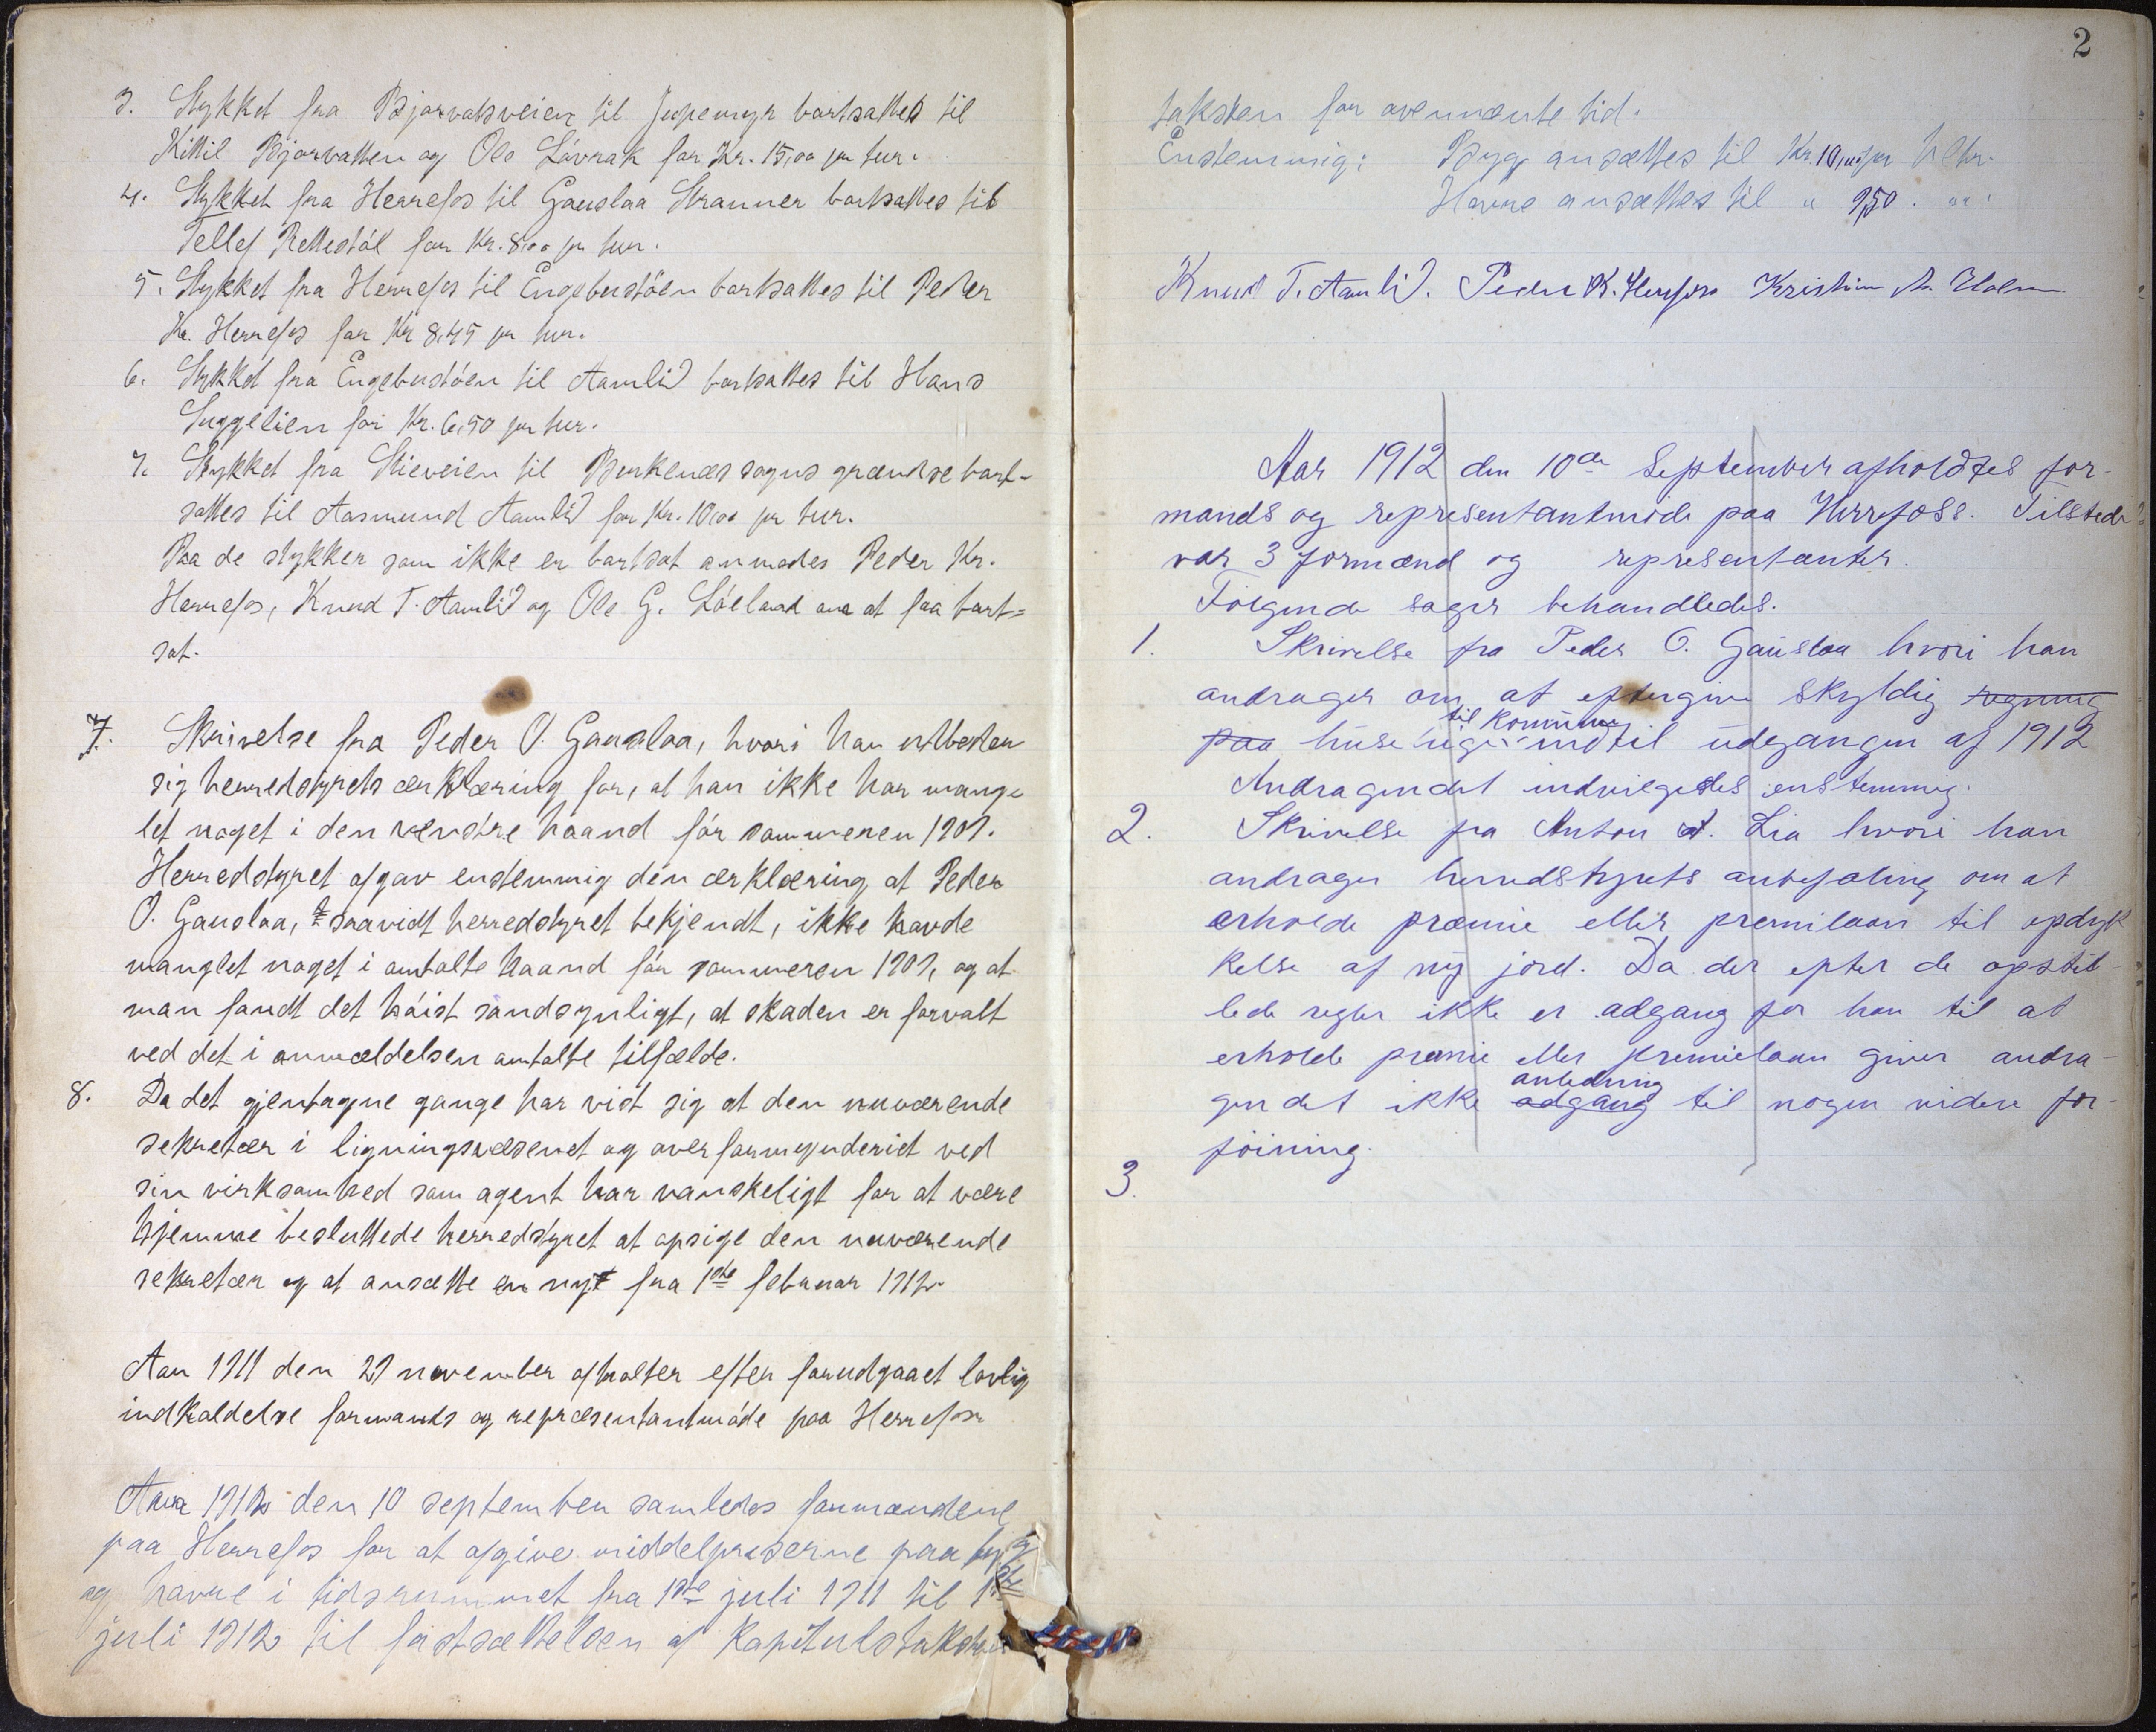 3. Stykket fra Bjorvatsveien til Jupemyr bortsattes til
Kittil Bjorvatten og Ole Løvrak for Kr. 15,00 pr tur.
4. Stykket fra Herrefos til Gauslaa Stranner bortsattes til
Tellef Rettestøl for Kr. 8,00 pr tur.
5. Stykket fra Herrefos til Engebustøen bortsattes til Peder
Kr. Herrefos for Kr 8,45 pr tur.
6. Stykket fra Engebustøen til Aamlid bortsattes til Hans
Suggelien for Kr. 6,50 pr tur.
7. Stykket fra Stieveien til Birkenæs sogns grændse bort-
sattes til Aasmund Aamlid for Kr. 10,00 pr tur.
Paa de stykker som ikke er bortsat anmodes Peder Kr.
Herrefos, Knud T. Aamlid og Ole G. Løland om at faa bort=
sat.
7. Skrivelse fra Peder O. Gauslaa, hvori han utbeder
sig herredstyrets ærklæring for, at han ikke har mang-
let noget i den venstre haand før sommeren 1907.
Herredstyret afgav enstemmig den ærklæring at Peder
O. Gauslaa, saavidt herredstyret bekjendt, ikke havde
manglet noget i omtalte haand før sommeren 1907, og at
man fandt det høist sandsynligt, at skaden er forvolt
ved det i anmældelsen omtalte tilfælde.
8. Da det gjentagne gange har vist sig at den nuværende
sekretær i ligningsvæsenet og overformynderiet ved
sin virksomhed som agent har vanskeligt for at være
hjemme besluttede herredstyret at opsige den nuværende
sekretær og at ansætte en ny fra 1ste februar 1912.
Aar 1911 den 27 november afholtes efter forudgaaet lovlig
indkaldelse formands og repræsentantmøde paa Herrefos.
Aar 1912 den 10 september samledes formændene
paa Herrefos for at afgive middelpriserne paa byg
og havre i tidsrummet fra 1ste juli 1911 til 1ste
juli 1912 til fastsættelsen af Kapitulstaksten
2
taksten for ovennævnte tid.
Enstemmig: Byg ansættes til Kr. 10,00 pr hltr.
Havre ansættes til " 7,50 . " "
Knud T. Aamlid. Peder K. Herrefos Kristian A. Holm
Aar 1912 den 10de September afholdtes for-
mands og representantmøde paa Herrefoss. Tilstede
var 3 formænd og representanter.
Følgende sager behandledes.
1. Skrivelse fra Peder O. Gauslaa hvori han
andrager om at eftergive skyldig regning
til kommunen
paa husehuge indtil udgangen af 1912
Andragendet indvilgedes enstemmig.
2. Skrivelse fra Anton A. Lia hvori han
andrager herredstyrets anbefaling om at
erholde præmie eller premilaan til opdyk
kelse af ny jord. Da der efter de opstil-
lede regler ikke er adgang for han til at
erholde premie eller premielaan giver andra-
anledning
gendet ikke adgang til nogen videre for-
føining.
3.